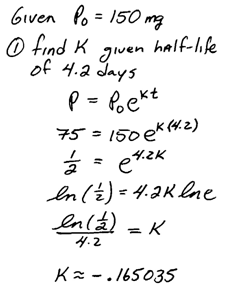 Given P₀ = 150 mg
① find K given half-life
of 4.2 days
P = P₀e^{Kt}
75 = 150e^{K(4.2)}
1/2 = e^{4.2K}
ln(1/2) = 4.2K ln e
ln(1/2)/4.2 = K
K ≈ -.165035